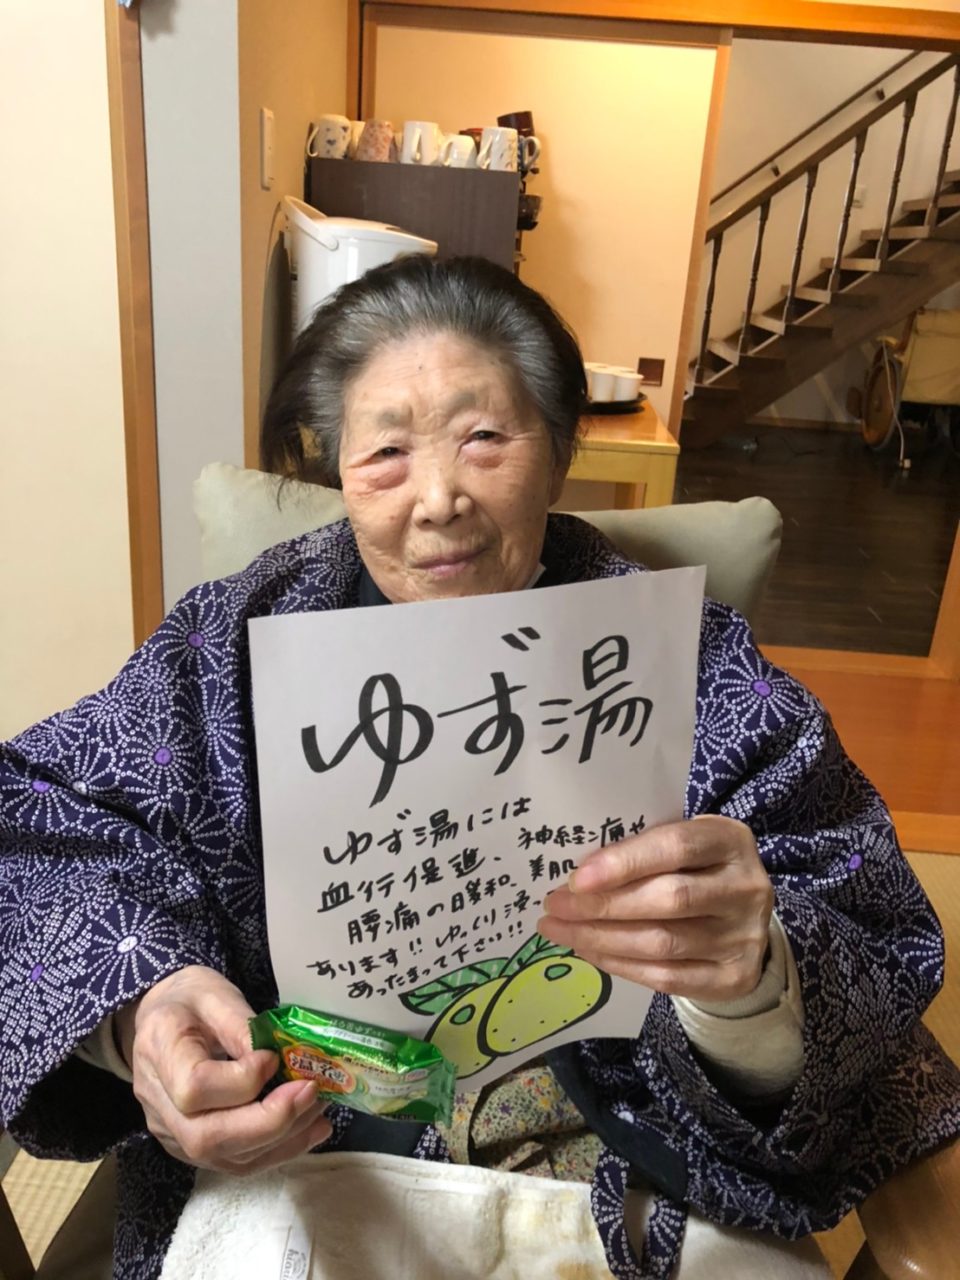 ゆず湯
ゆず湯には
血行促進、神経痛や
腰痛の緩和、美肌
あります!!ゆっくり浸っ
あったまって下さい!!